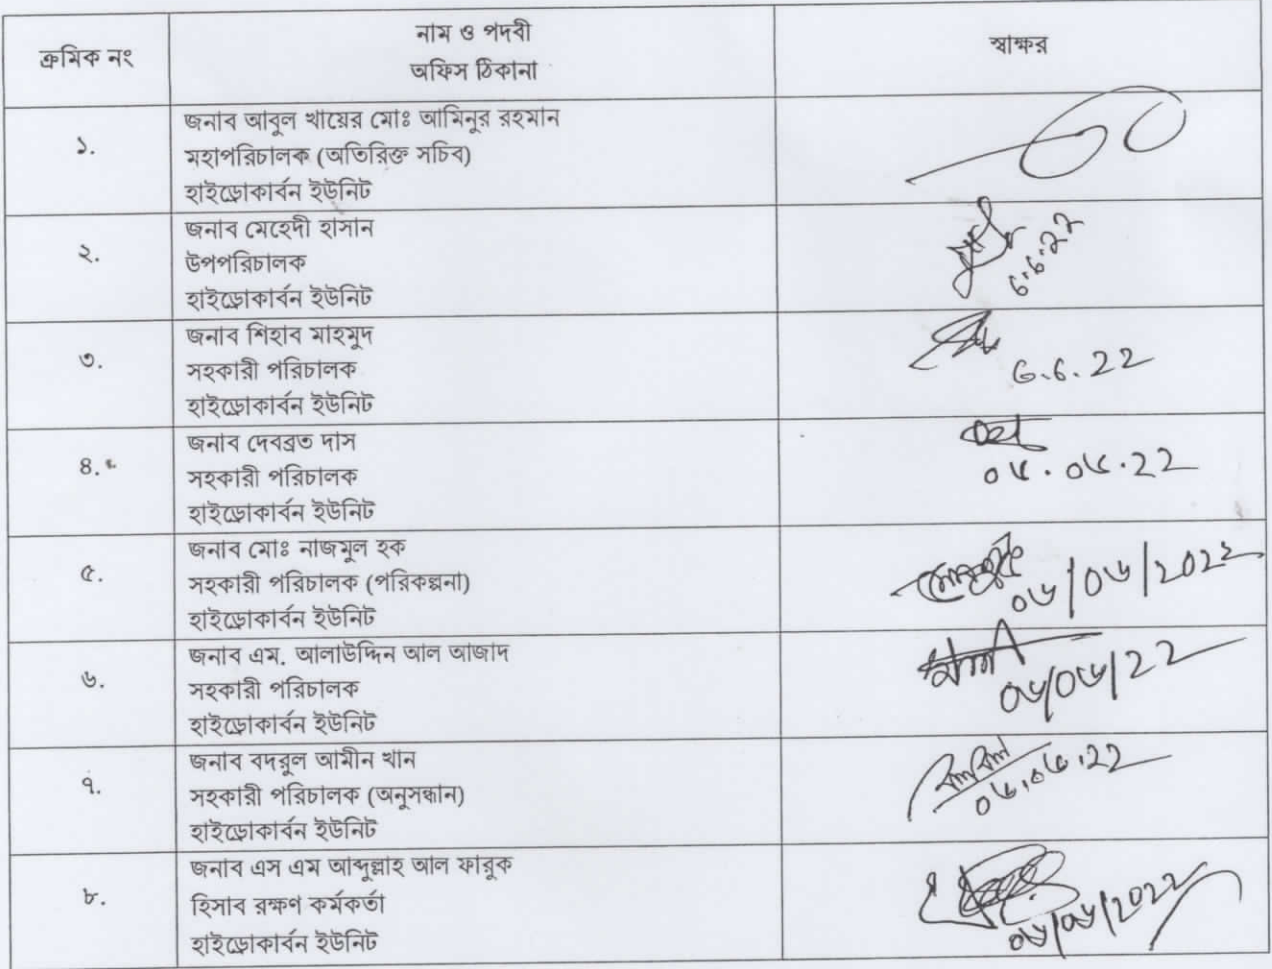 ক্রমিক নং
নাম ও পদবী
অফিস ঠিকানা
স্বাক্ষর
১.
জনাব আবুল খায়ের মোঃ আমিনুর রহমান
মহাপরিচালক (অতিরিক্ত সচিব)
হাইড্রোকার্বন ইউনিট
২.
জনাব মেহেদী হাসান
উপপরিচালক
হাইড্রোকার্বন ইউনিট
৬.৬.২২
৩.
জনাব শিহাব মাহমুদ
সহকারী পরিচালক
হাইড্রোকার্বন ইউনিট
6.6.22
৪.
জনাব দেবব্রত দাস
সহকারী পরিচালক
হাইড্রোকার্বন ইউনিট
০৬.০৬.২২
৫.
জনাব মোঃ নাজমুল হক
সহকারী পরিচালক (পরিকল্পনা)
হাইড্রোকার্বন ইউনিট
০৬/০৬/২০২২
৬.
জনাব এম. আলাউদ্দিন আল আজাদ
সহকারী পরিচালক
হাইড্রোকার্বন ইউনিট
০৬/০৬/২২
৭.
জনাব বদরুল আমীন খান
সহকারী পরিচালক (অনুসন্ধান)
হাইড্রোকার্বন ইউনিট
০৬.০৬.২২
৮.
জনাব এস এম আব্দুল্লাহ আল ফারুক
হিসাব রক্ষণ কর্মকর্তা
হাইড্রোকার্বন ইউনিট
০৬/০৬/২০২২